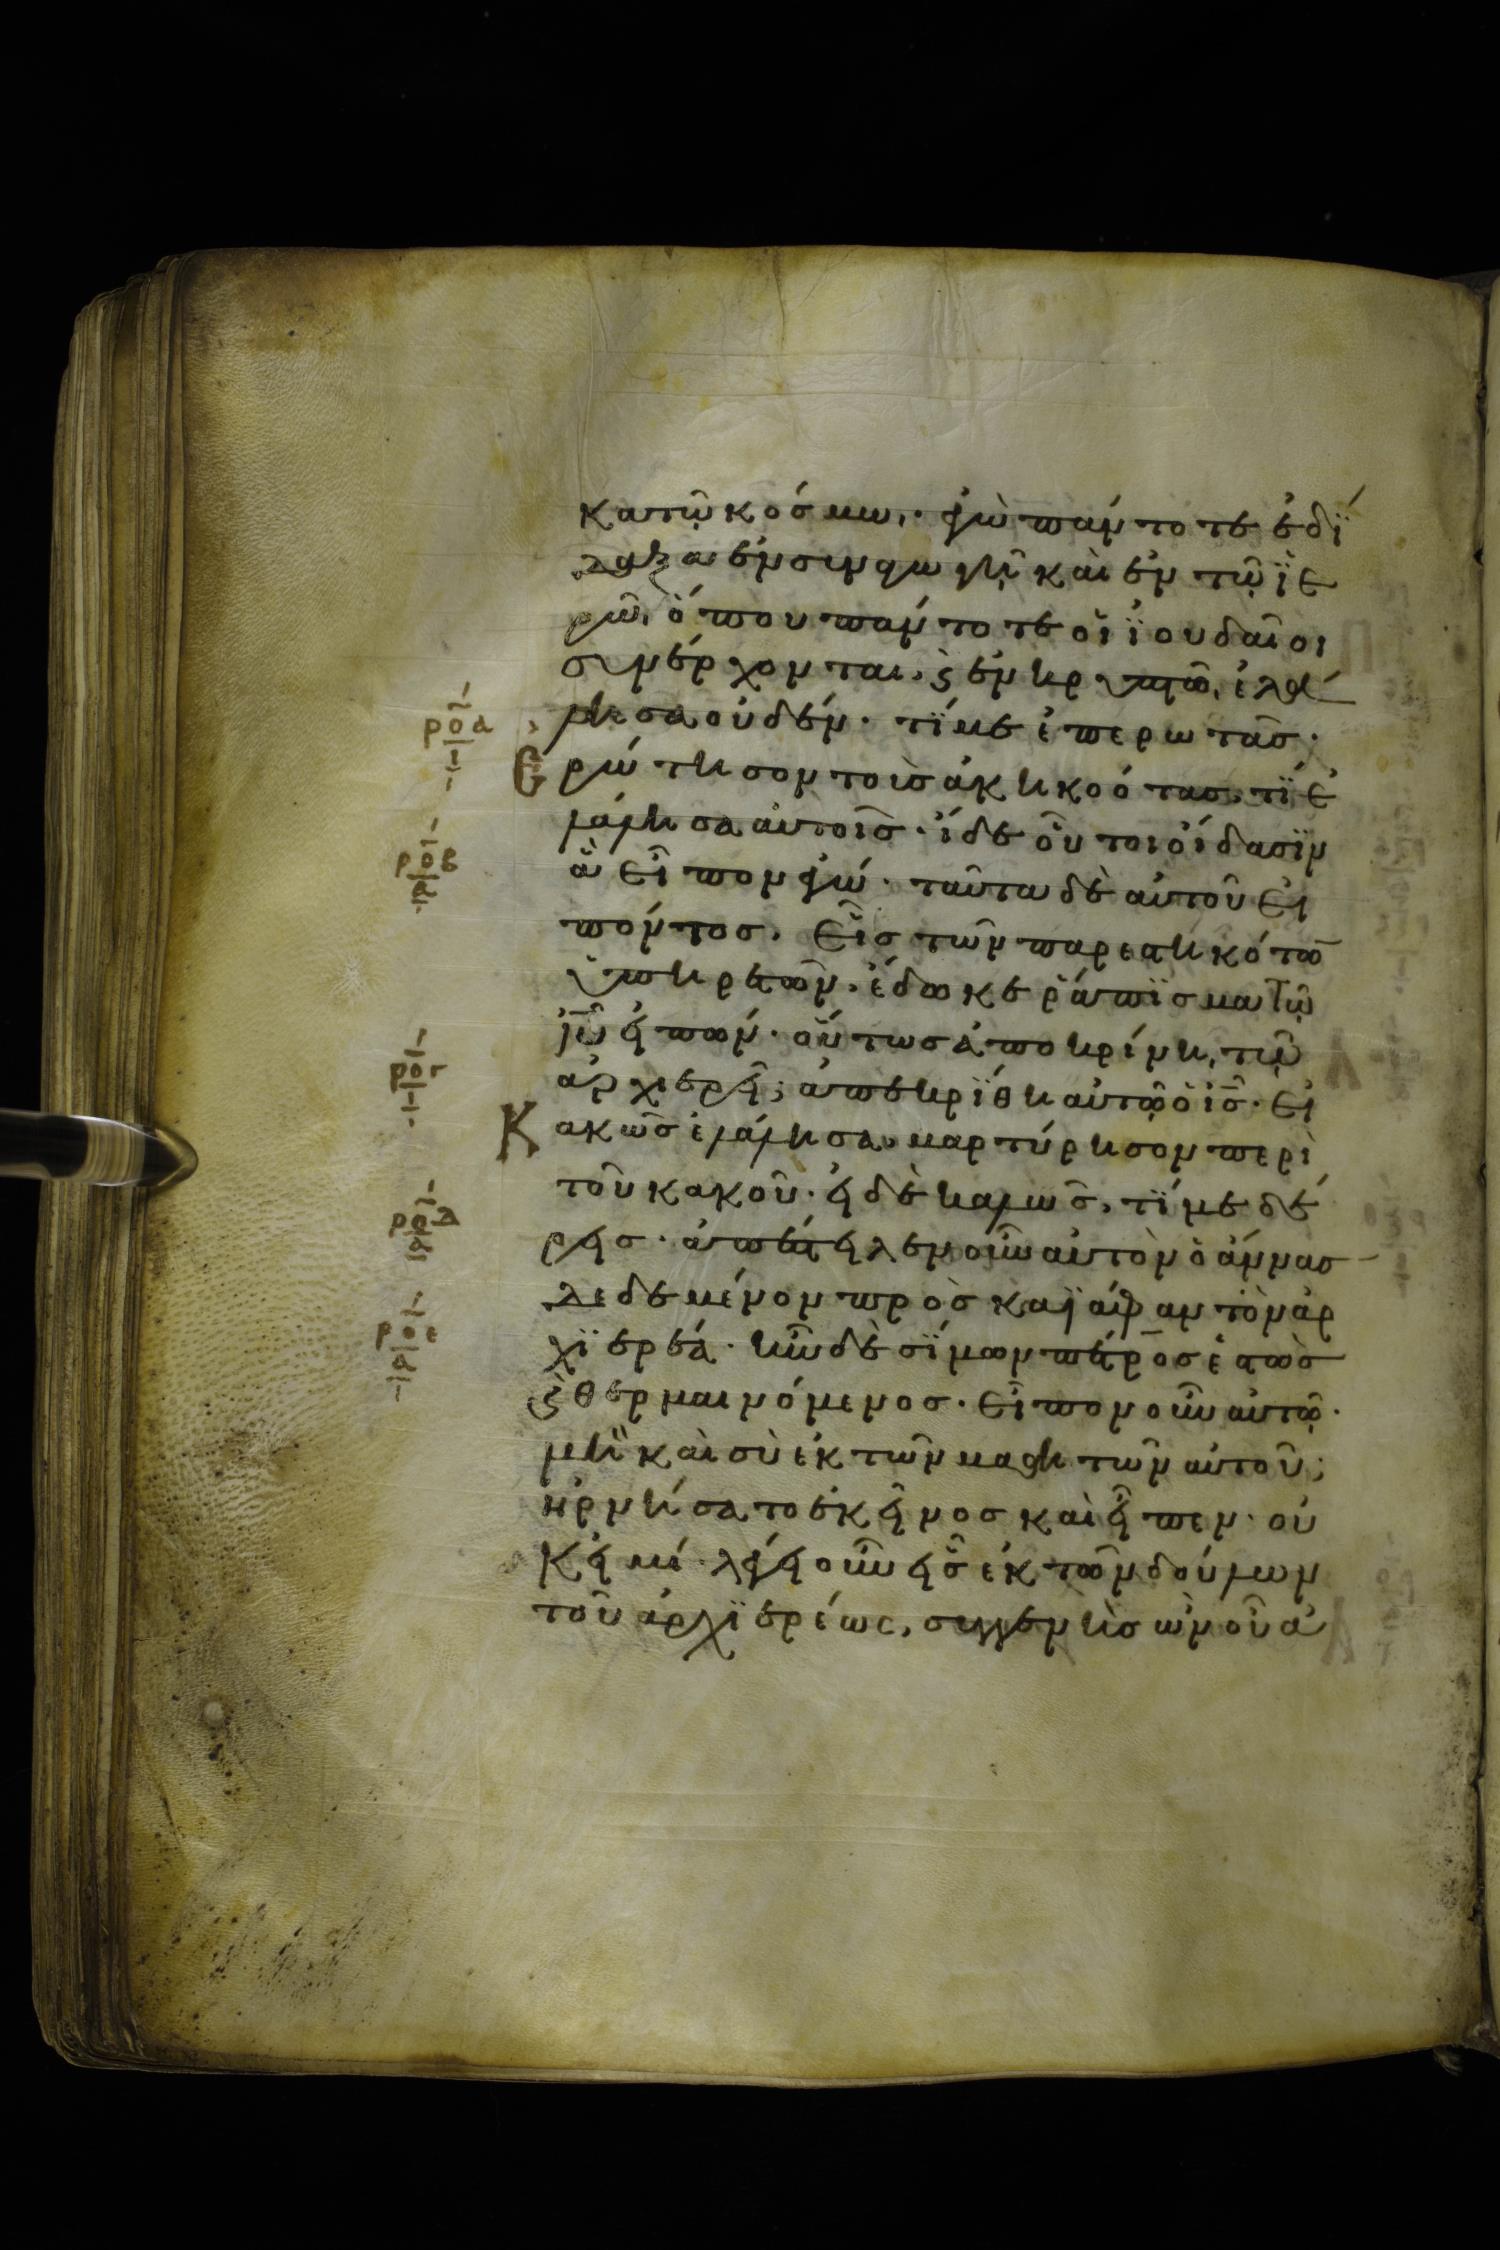 κα τῶ κόσμω· ἐγὼ πάντοτε ἐδί
δαξα ἐν συναγωγῆ καὶ ἐν τῶ ἱε
ρῶ, ὅπου πάντοτε οἱ ἰουδαῖοι
συνέρχονται, κ̀ ἐν κρυπτῶ ἐλά
ρ̅ο̅α̅
ι
λησα οὐδέν· τί με ἐπερωτᾶς·
Ἐρώτησον τοὺς ἀκηκοότας, τί ἐ
ρ̅ο̅β̅
α
λάλησα αὐτοῖς· ἴδε οὗτοι οἴδασιν
ἃ εἶπον ἐγώ· ταῦτα δὲ αὐτοῦ εἰ
πόντος, εἷς τῶν παρεστηκότω
ὑπηρετῶν, ἔδωκε ῥάπισμα τῶ
ρ̅ο̅γ̅
ι
ιῦ εἰπών· οὕτως ἀποκρίνη τῶ
ἀρχιερεῖ; ἀπεκρίθη αὐτῶ ὁ ις· Εἰ
Κακῶς ἐλάλησα, μαρτύρησον περὶ
ρ̅ο̅δ̅
α
τοῦ κακοῦ· εἰ δὲ καλῶς, τί με δέ
ρεις· ἀπέστειλεν οὖν αὐτὸν ὁ ἄννας
δεδεμένον πρὸς καϊάφαν τὸν ἀρ
ρ̅ο̅ε̅
α
χιερέα· ἦν δὲ σίμων πέτρος ἑστὼς
κ̀ θερμαινόμενος· εἶπον οὖν αὐτῶ·
μὴ καὶ σὺ ἐκ τῶν μαθητῶν αὐτοῦ;
ἠρνήσατο ἐκεῖνος καὶ εἶπεν· οὐ
κ εἰμί· λέγει οὖν εἷς ἐκ τῶν δούλων
τοῦ ἀρχιερέως, συγγενὴς ὢν οὗ ἀ